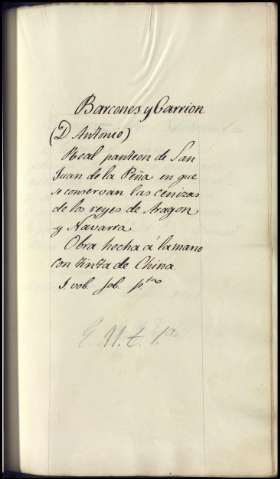 Barcones y Carrion
(D Antonio)
Real panteon de San
Juan de la Peña en que
se conservan las cenizas
de los reyes de Aragon
y Navarra
Obra hecha á la mano
con tinta de China
1 vol. fol.
E. M. E. 1ª